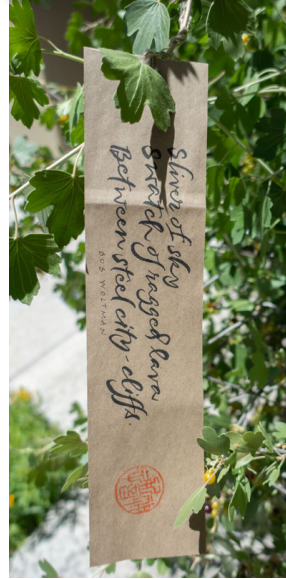 Sliver of sky
Swatch of ragged lava
Between steel city-cliffs.
BOB WOLTMAN